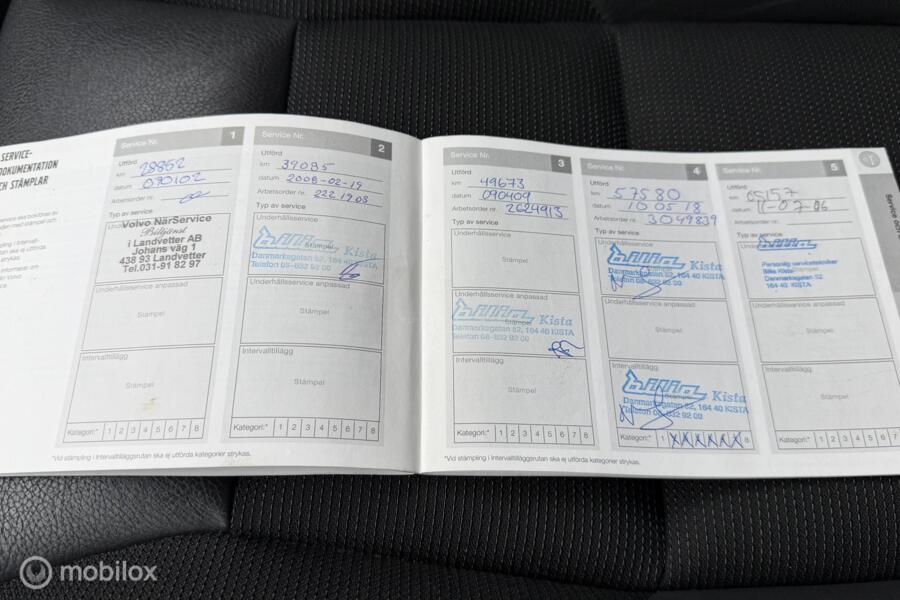 SERVICE-
DOKUMENTATION
CH STÄMPLAR
Service Nr. 1
Utförd
km 28862
datum 070102
Arbetsorder nr.
Typ av service
Volvo NärService
Biltjänst
i Landvetter AB
Johans väg 1
438 93 Landvetter
Tel.031-91 82 97
Underhållsservice anpassad
Stämpel
Intervalltillägg
Stämpel
Kategori:* 1 2 3 4 5 6 7 8
Service Nr. 2
Utförd
km 39085
datum 2008-02-19
Arbetsorder nr. 2221903
Typ av service
Underhållsservice
bilia Kista
Stämpel
Danmarksgatan 52, 164 40 KISTA
Telefon 08-632 92 00
Underhållsservice anpassad
Stämpel
Intervalltillägg
Stämpel
Kategori:* 1 2 3 4 5 6 7 8
*Vid stämpling i Intervalltilläggsrutan ska ej utförda kategorier strykas.
Service Nr. 3
Utförd
km 49673
datum 090409
Arbetsorder nr. 2624913
Typ av service
Underhållsservice
Stämpel
Underhållsservice anpassad
bilia Kista
Stämpel
Danmarksgatan 52, 164 40 KISTA
Telefon 08-632 92 00
Intervalltillägg
Stämpel
Kategori:* 1 2 3 4 5 6 7 8
Service Nr. 4
Utförd
km 57580
datum 100518
Arbetsorder nr. 3049839
Typ av service
bilia Kista
Danmarksgatan 52, 164 40 KISTA
Telefon 08-632 92 00
Underhållsservice anpassad
Stämpel
Intervalltillägg
bilia Kista
Danmarksgatan 52, 164 40 KISTA
Telefon 08-632 92 00
Kategori:* 1 8
Service Nr. 5
Utförd
km 65157
datum 11-07-06
Arbetsorder nr.
Typ av service
bilia
Personlig servicetekniker
Bilia Kista
Danmarksgatan 52
164 40 KISTA
Underhållsservice anpassad
Stämpel
Intervalltillägg
Stämpel
Kategori:* 1 2 3 4 5 6 7
*Vid stämpling i Intervalltilläggsrutan ska ej utförda kategorier strykas.
mobilox